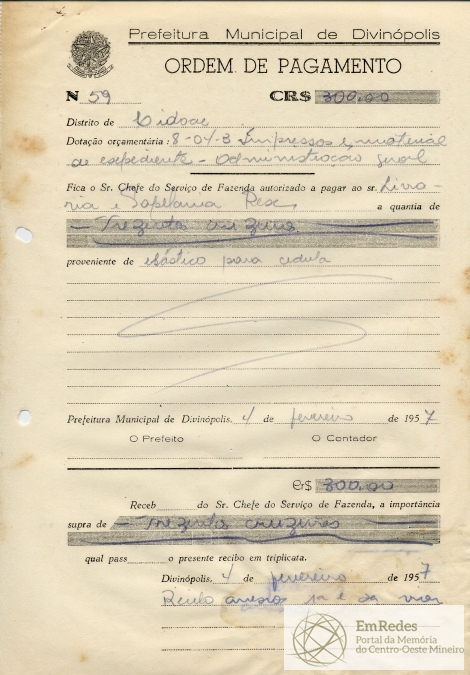 Prefeitura Municipal de Divinópolis
ORDEM DE PAGAMENTO
N 59 CR$ 300,00
Distrito de Cidade
Dotação orçamentária: 8-04-3 Impressos e material
de expediente - Administração geral
Fica o Sr. Chefe do Serviço de Fazenda autorizado a pagar ao sr. Livra-
ria e Papelaria Rex a quantia de
— Trezentos cruzeiros
proveniente de elástico para cedula
Prefeitura Municipal de Divinópolis, 4 de fevereiro de 1957
O Prefeito O Contador
CR$ 300,00
Receb do Sr. Chefe do Serviço de Fazenda, a importância
supra de — Trezentos cruzeiros
qual pass o presente recibo em triplicata.
Divinópolis, 4 de fevereiro de 1957
Recibo
EmRedes
Portal da Memória
do Centro-Oeste Mineiro